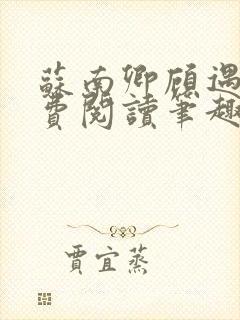 蘇南卿顾遇
費閱讀筆趣
賈宜蒸